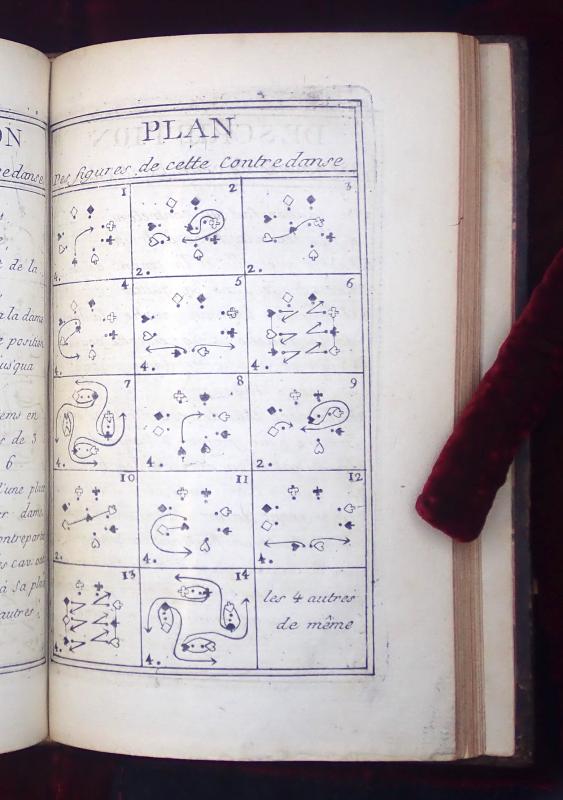 ON
redanse
de la
a la dame
e position
usqua
ems en
r de 3
6
d'une pla
er dame
ontrepartie
es cav. ont
à sa pla
autres
PLAN
Des figures de cette Contredanse
1 2 3
4. 2. 2.
4 5 6
4. 4. 4.
7 8 9
4. 4. 2.
10 11 12
2. 4. 4.
13 14
les 4 autres
de même
4. 4.